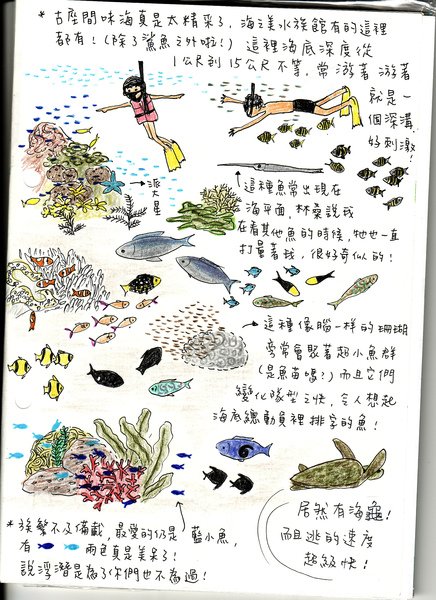 * 古座間味海真是太精采了，海之美水族館有的這裡
都有！(除了鯊魚之外啦！) 這裡海底深度從
1公尺到15公尺不等，常游著游著
就是一
個深溝，
好刺激！
→派大星
這種魚常出現在
海平面，林桑說我
在看其他魚的時候，牠也一直
打量著我，很好奇似的！
→這種像腦一樣的珊瑚
旁常會聚著超小魚群
(是魚苗嗎?) 而且它們
變化隊型之快，令人想起
海底總動員裡排字的魚！
居然有海龜！
而且逃的速度
超級快！
* 族繁不及備載，最愛的仍是藍小魚，
有 兩色真是美呆了！
說浮潛是為了你們也不為過！